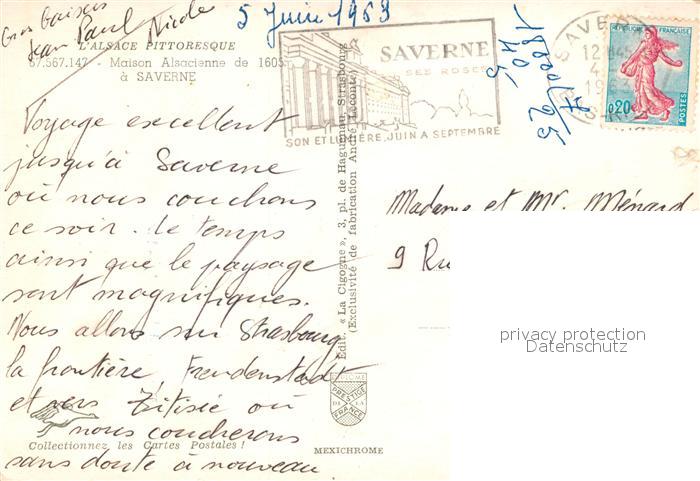 Gros baisers
Jean Paul Nicole
5 Juin 1963
L'ALSACE PITTORESQUE
67.567.147 - Maison Alsacienne de 1605
à SAVERNE
Voyage excellent
jusqu'à Saverne
où nous couchons
ce soir. Le temps
ainsi que le paysage
sont magnifiques.
Nous allons sur Strasbourg
la frontière Freudenstadt
et vers Titisée où
nous coucherons
sans doute à nouveau
Collectionnez les Cartes Postales !
Edit. « La Cigogne », 3, pl. de Haguenau, Strasbourg
(Exclusivité de fabrication André Leconte)
PRESTIGE
DE LA
FRANCE
MEXICHROME
SAVERNE
SES ROSES
SON ET LUMIÈRE, JUIN A SEPTEMBRE
SAVERNE
12
4
19
RÉPUBLIQUE FRANÇAISE
0,20
POSTES
Madame et Mr. Ménard
9 Ru
privacy protection
Datenschutz